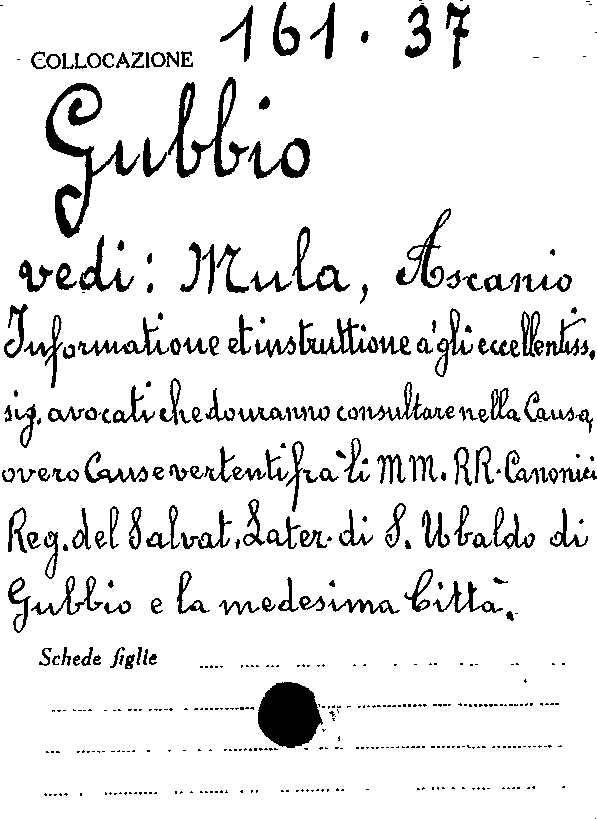 COLLOCAZIONE 161. 37
Gubbio
vedi: Mula, Ascanio
Informatione et instruttione a' gli eccellentiss.
sig. avocati che douranno consultare nella Causa,
overo Cause vertenti fra' li MM. RR. Canonici
Reg. del Salvat. Later. di S. Ubaldo di
Gubbio e la medesima Città.
Schede figlie